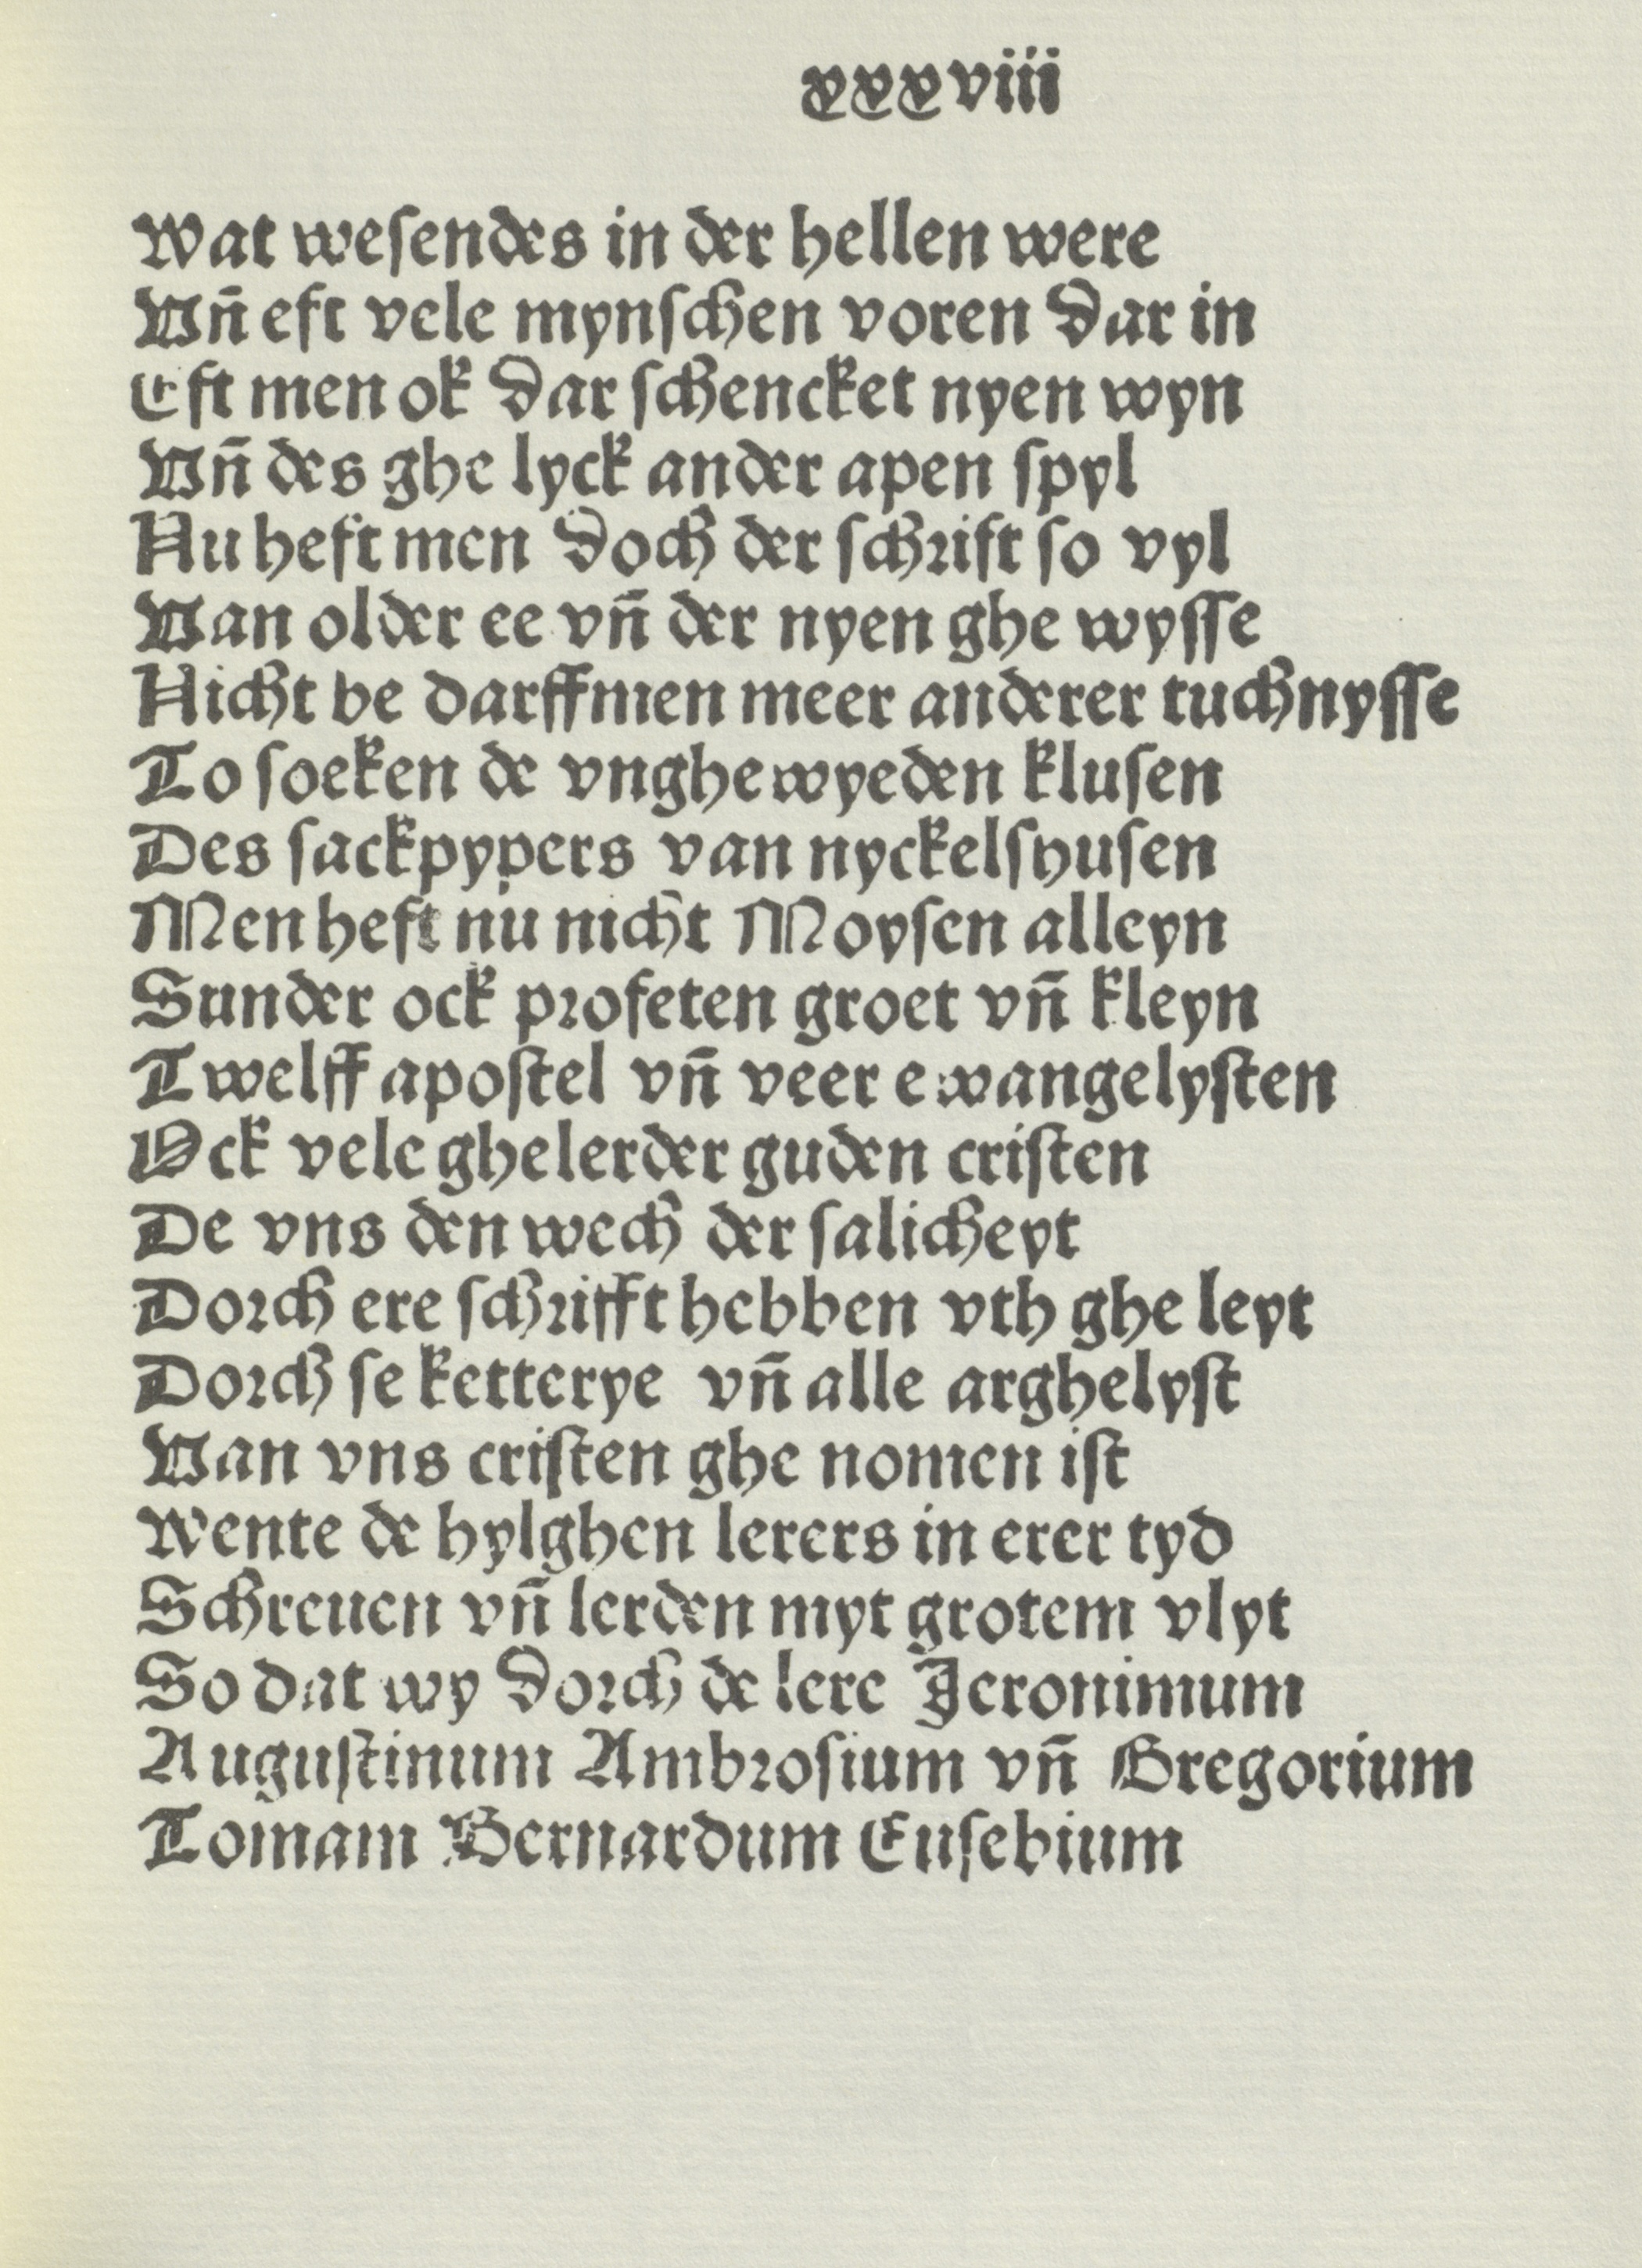 xxxviii
Wat weſendes in der hellen were
Vn̄ eft vele mynſchen voren dar in
Eft men ok dar ſchencket nyen wyn
Vn̄ des ghe lyck ander apen ſpyl
Nu heft men doch der ſchrift ſo vyl
Van older ee vn̄ der nyen ghe wyſſe
Nicht be darffmen meer anderer tuchnyſſe
To ſoeken de vnghewyeden kluſen
Des ſackpypers van nyckelshuſen
Men heft nu nicht Moyſen alleyn
Sunder ock profeten groet vn̄ kleyn
Twelff apoſtel vn̄ veer ewangelyſten
Ock vele ghelerder guden criſten
De vns den wech der ſalicheyt
Dorch ere ſchrifft hebben vth ghe leyt
Dorch ſe ketterye vn̄ alle arghelyſt
Van vns criſten ghe nomen iſt
Wente de hylghen lerers in erer tyd
Schreuen vn̄ lerden myt grotem vlyt
So dat wy dorch de lere Jeronimum
Auguſtinum Ambroſium vn̄ Gregorium
Tomam Bernardum Euſebium